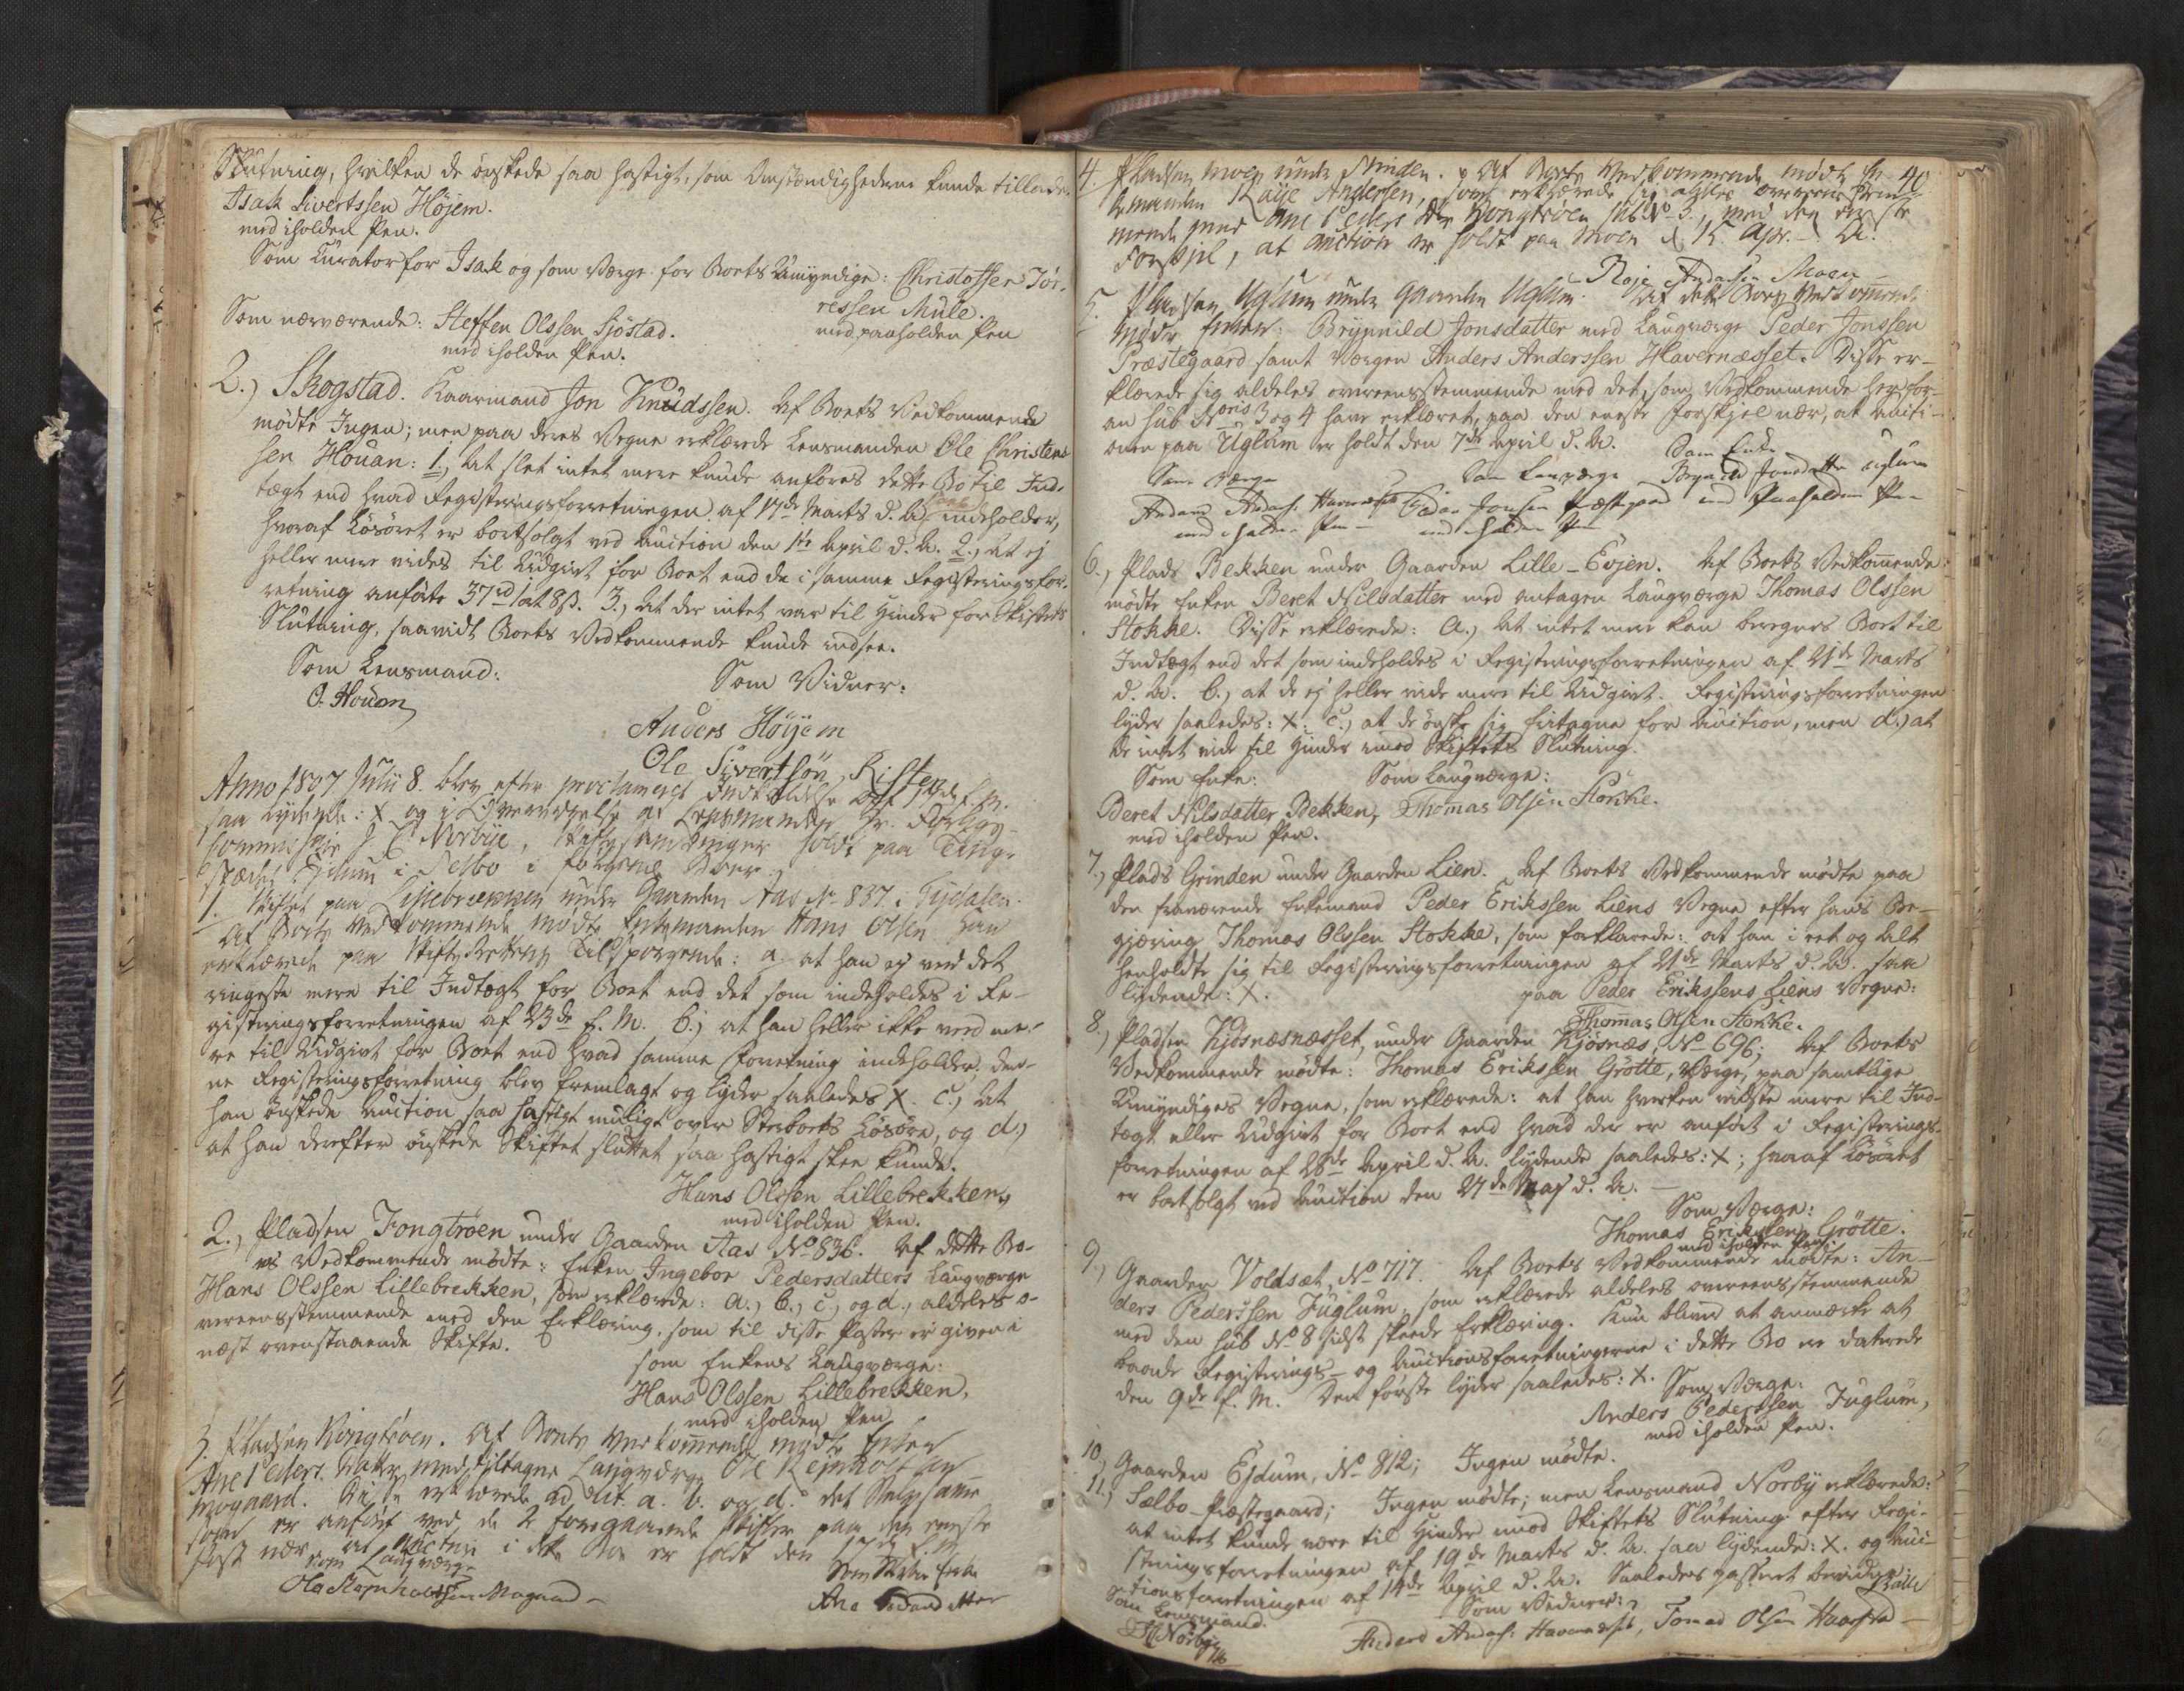 Slutning, hvilken de önskede saa hastigt, som Omstændighederne kunde tillade.
Isak Sivertssen Höjem.
med iholden Pen.
Som Curator for Isak og som Værge for Boets Umyndige: Christoffer Tör-
ressen Mule.
med paaholden Pen
Som nærværende: Steffen Olssen Sjöstad.
med iholden Pen.
2.) Skogstad. Kaarmand Jon Knudssen. Af Boets Vedkommende
mödte Ingen; men paa deres Vegne erklærede Lensmanden Ole Christens
sen Houan: 1.) At slet intet mere kunde anföres dette Bo til Ind-
tægt end hvad Registeringsforretningen af 17de Marts d. A. indeholder,
hvoraf Lösöret er bortsolgt ved Auction den 1ste April d. A. 2.) At ej
heller mere vides til Udgivt for Boet end de i samme Registeringsfor-
retning anförte 37rd 1 ort 8 s. 3.) At der intet var til Hinder for Skiftets
Slutning, saavidt Boets Vedkommende kunde indsee.
Som Lensmand:
Som Vidner:
O. Houan
Anders Höÿem
Ole Sivertsön, Risten
Anno 1807 Julii 8. blev efter proclameret Indkaldelse af 17de f. M.
saa lydende: X og i Overværelse af Lensmanden Hr. Forligs-
commissair J C Norbye, Skiftesamlinger holdt paa Ting-
stædet Ejdum i Selbo i fölgende Boer:
1. Skiftet paa Lillebrækken under Gaarden Aas No 837 i Tydalen.
Af Boets Vedkommende mödte Enkemanden Hans Olsen. Han
erklærede paa Skifte Rettens Tilspörgende: a., at han ej veed det
ringeste mere til Indtægt for Boet end det som indeholdes i Re-
gisteringsforretningen af 23de f. M. b.) at han heller ikke veed me-
re til Udgivt for Boet end hvad samme Forretning indeholder; den-
ne Registeringsforretning blev fremlagt og lyder saaledes X. c.) At
han önskede Auction saa hastigt muligt over Sterboets Lösöre, og d.)
at han derefter önskede Skiftet sluttet saa hastigt skee kunde.
Hans Olssen Lillebrekken,
med iholden Pen.
2., Pladsen Fongtröen under Gaarden Aas No 836. Af dette Bo-
es Vedkommende mödte: Enken Ingebor Pedersdatters Laugværge
Hans Olssen Lillebrekken, som erklærede: a., b., c., og d., aldeles o-
vereensstemmende med den Erklæring, som til disse Poster er given i
næst ovenstaaende Skifte.
som Enkens Laugværge:
Hans Olssen Lillebrekken,
med iholden Pen
3. Pladsen Kongtröen. Af Boets Vedkommende mödte Enken
Ane Peders Datter med tiltagne Laugværge Ole Rejnholtsen
Mogaard. De erklærede ad lit. a. b. og d. det samme
som er anfört ved de 2 foregaaende Skifter paa den eneste
Post nær at Auction i dette Boe er holdt den
som Laugværge
Som Enke
Ole Reinholtsen Mogaard
Ane Pedersdatter
4. Pladsen Moen under Grinden. Af Boets Vedkommende mödte En- 40
kemanden Roije Andersen, som erklærede sig aldeles overeensstem-
mende med Ane Peders Dtr Kongtröen sub No 3., med den eneste
Forskjel, at Auction er holdt paa Moen d. 15 Apr. d. A.
Roje Andersen Moen
5. Pladsen Uglum under Gaarden Uglum. Af dette Boes Vedkommende
möder Enken: Brynnild Jonsdatter med Laugværge Peder Jonssen
Præstegaard samt Værgen Anders Anderssen Havernæsset. Disse er-
klærede sig aldeles overeensstemmende med det, som Vedkommende her for-
an sub Noris 3 og 4 have erklæret, paa den eneste Forskjel nær, at Aucti-
onen paa Uglum er holdt den 7de April d. A.
Som Værge
Som Laugværge
Som Enke
Anders Anders. Havernæsset
Peder Jonsen Præstgaard
Brynild Jonsdatter Uglum
med iholden Pen
med iholden Pen
med Paaholden Pen
6., Plads Bekken under Gaarden Lille-Evjen. Af Boets Vedkommende
mödte Enken Beret Nilsdatter med antagen Laugværge Thomas Olssen
Stokke. Disse erklærede: a., At intet mere kan beregnes Boet til
Indtægt end det som indeholdes i Registeringsforretningen af 21de Marts
d. A. b., at de ej heller vide mere til Udgivt. Registeringsforretningen
lyder saaledes: X. c., at de önske sig fritagne for Auction, men d., at
de intet vide til Hinder imod Skiftets Slutning.
Som Enke:
Som Laugværge:
Beret Nilsdatter Bekken,
Thomas Olsen Stokke.
med iholden Pen.
7., Plads Grinden under Gaarden Lien. Af Boets Vedkommende mödte paa
den fraværende Enkemand Peder Erikssen Liens Vegne efter hans Be-
gjæring Thomas Olssen Stokke, som forklarede: at han i eet og Alt
henholdte sig til Registeringsforretningen af 21de Marts d. A. saa
lydende: X.
paa Peder Erikssens Liens Vegne:
Thomas Olsen Stokke.
8., Pladsen Kjösnæsnæsset, under Gaarden Kjösnæs, No 696; Af Boets
Vedkommende mödte: Thomas Erikssen Grötte, Værge, paa samtlige
Umyndiges Vegne, som erklærede: at han hverken vidste mere til Ind-
tægt eller Udgivt for Boet end hvad der er anfört i Registerings-
forretningen af 28de April d. A. lydende saaledes: X; hvoraf Lösöret
er bortsolgt ved Auction den 27de Maj d. A.
Som Værge:
Thomas Erikssen Grötte.
med iholden Pen.
9., Gaarden Voldsæt, No 717. Af Boets Vedkommende mödte: An-
ders Pederssen Fuglum, som erklærede aldeles overeensstemmende
med den sub No 8 sidst skeede Erklæring. Kun bliver at anmærke at
baade Registerings- og Auctionsforretningerne i dette Bo ere daterede
den 9de f. M. Den förste lyder saaledes: X.
Som Værge:
Anders Pederssen Fuglum,
med iholden Pen.
10, Gaarden Ejdum, No 812; Ingen mödte.
11., Sælbo Præstegaard; Ingen mödte; men Lensmand Norby erklærede:
at intet kunde være til Hinder mod Skiftets Slutning efter Regi-
steringsforretningen af 19de Marts d. A. saa lydende: X. og Auc-
tionsforretningen af 14de April d. A. Saaledes passeret bevidner
Som Lensmand.
Som Vidner:
Norbye
Anders Anders. Havernæsset, Tomas Olsen Haarstad